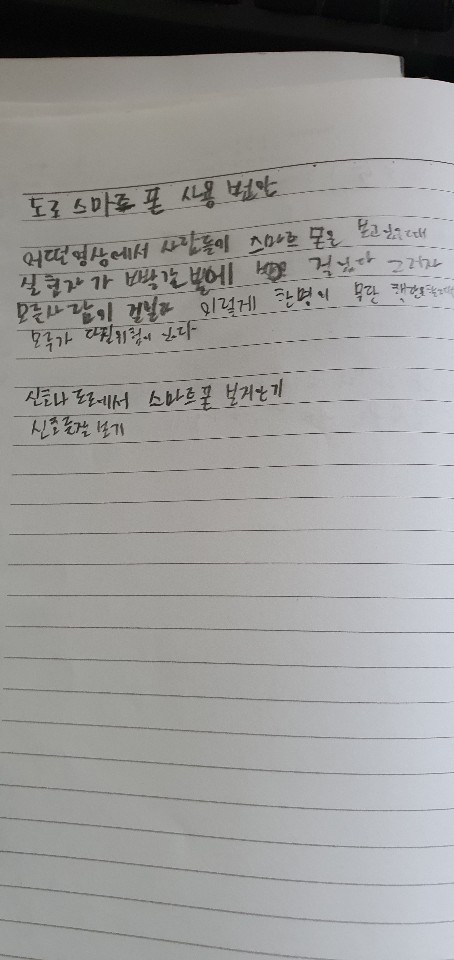 도로 스마트 폰 사용 방법
어떤영상에서 사람들이 스마트 폰을 보고있을때
실험자가 빨간불에 걸었다 그러자
모든사람이 걸었다 이렇게 한명이 무단
모두가 다칠위험이 있다
신호나 도로에서 스마트폰 보지않기
신호등잘 보기